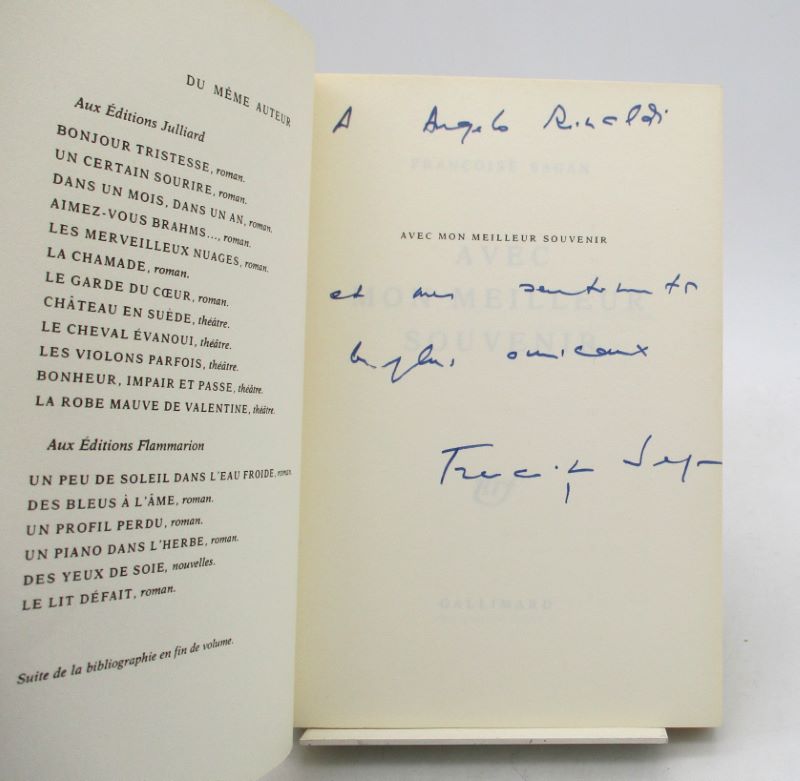 DU MÊME AUTEUR
Aux Éditions Julliard
BONJOUR TRISTESSE, roman.
UN CERTAIN SOURIRE, roman.
DANS UN MOIS, DANS UN AN, roman.
AIMEZ-VOUS BRAHMS..., roman.
LES MERVEILLEUX NUAGES, roman.
LA CHAMADE, roman.
LE GARDE DU CŒUR, roman.
CHÂTEAU EN SUÈDE, théâtre.
LE CHEVAL ÉVANOUI, théâtre.
LES VIOLONS PARFOIS, théâtre.
BONHEUR, IMPAIR ET PASSE, théâtre.
LA ROBE MAUVE DE VALENTINE, théâtre.
Aux Éditions Flammarion
UN PEU DE SOLEIL DANS L'EAU FROIDE, roman.
DES BLEUS À L'ÂME, roman.
UN PROFIL PERDU, roman.
UN PIANO DANS L'HERBE, roman.
DES YEUX DE SOIE, nouvelles.
LE LIT DÉFAIT, roman.
Suite de la bibliographie en fin de volume.
A Angelo Rinaldi
FRANÇOISE SAGAN
AVEC MON MEILLEUR SOUVENIR
AVEC
MON MEILLEUR
SOUVENIR
et mes sentiments
les plus amicaux
Françoise Sagan
nrf
GALLIMARD